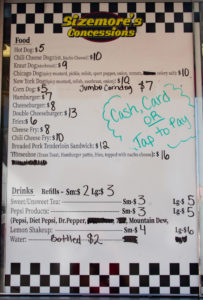 Sizemore's
Concessions
Food
Hot Dog: $5
Chili Cheese Dog $10
Kraut Dog $9
Chicago Dog (spicy mustard, pickle, relish, sport pepper, onion, tomato, celery salt) $10
New York Dog $10
Corn Dog: $5 Jumbo Corndog $7
Hamburger: $7
Cheeseburger: $8
Double Cheeseburger: $13
Fries: $6
Cheese Fry: $8
Chili Cheese Fry: $10
Breaded Pork Tenderloin Sandwich: $12
Horseshoe (Texas Toast, Hamburger pattie, fries, topped with nacho cheese): $16
Cash, Card
OR
Tap to Pay
Drinks Refills - Sm: $2 Lg $3
Sweet/Unsweet Tea: Sm-$ 3 Lg-$ 5
Pepsi Products: Sm-$ 3 Lg-$ 5
(Pepsi, Diet Pepsi, Dr. Pepper, Mountain Dew,
Lemon Shakeup: Sm-$ 4 Lg-$6
Water: Bottled $2